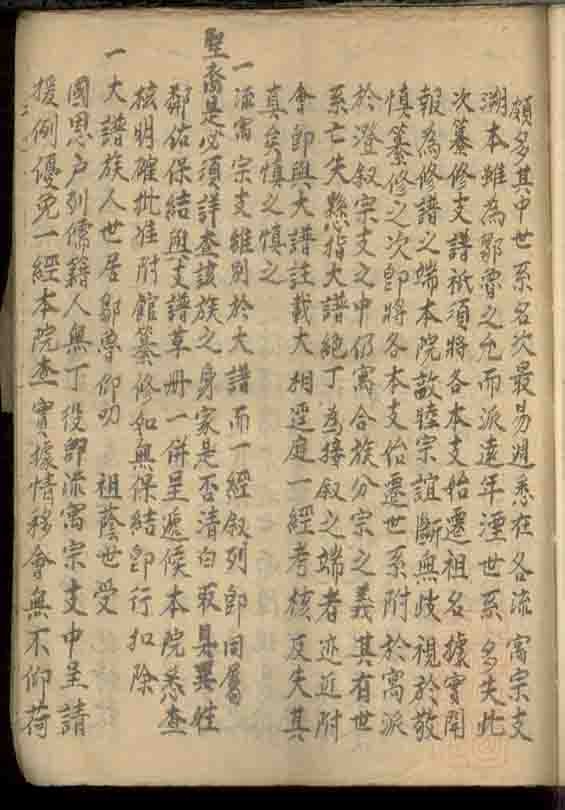 頗多其中世系名次最易週悉在各流寓宗支
溯本雖為鄒魯之允而派遠年湮世系多失此
次纂修支譜祇須將各本支始遷祖名據實開
報為修譜之端本院敦睦宗誼斷無歧視於敬
慎纂修之次卽將各本支始遷世系附於寓派
於澄叙宗支之中仍寓合族分宗之義其有世
系亡失懸指大譜絕丁為接叙之端者迹近附
會卽與大譜註載大相逕庭一經考核反失其
真矣慎之慎之
一流寓宗支雖別於大譜而一經叙列卽同屬
聖裔是必須詳查該族之身家是否清白取具異姓
鄰佑保結與支譜草册一併呈遞候本院悉查
核明確批准附館纂修如無保結卽行扣除
一大譜族人世居鄒魯仰叨 祖蔭世受
國恩户列儒籍人無丁役卽流寓宗支中呈請
援例優免一經本院查實據情移會無不仰荷